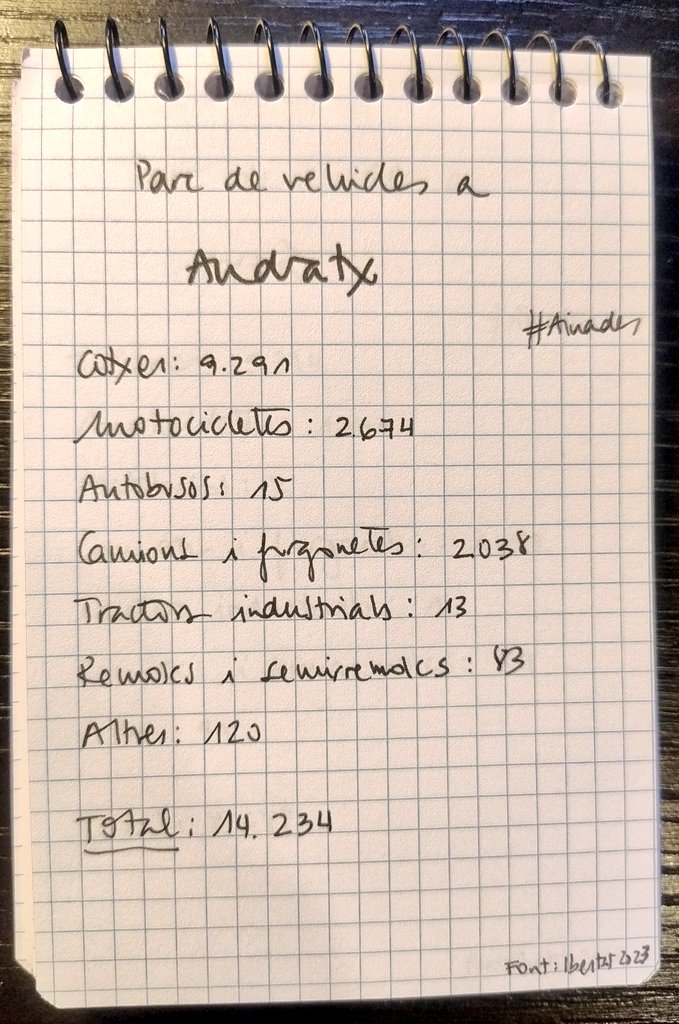 Parc de vehicles a
Andratx
#Ainades
Cotxes: 9.291
Motocicletes: 2674
Autobusos: 15
Camions i furgonetes: 2038
Tractors industrials: 13
Remolcs i semirremolcs: 83
Altres: 120
Total: 14.234
Font: Ibestat 2023